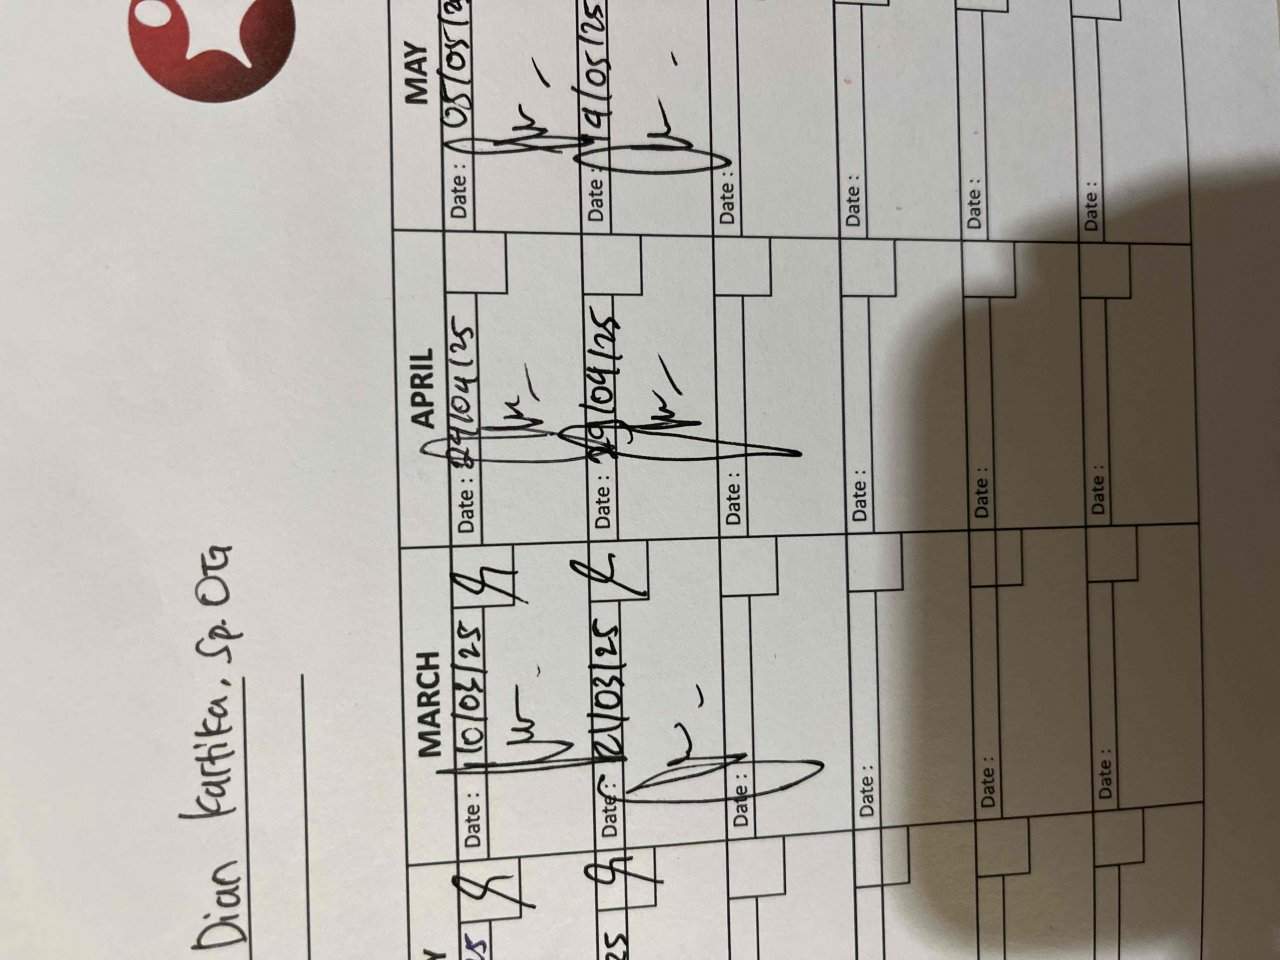 Dian Kartika, Sp.OG
MARCH APRIL MAY
Date : 10/03/25 Date : 24/04/25 Date : 05/05/2
Date : 21/03/25 Date : 29/04/25 Date : 19/05/25
25
Date : Date : Date :
Date : Date : Date :
Date : Date : Date :
Date : Date : Date :